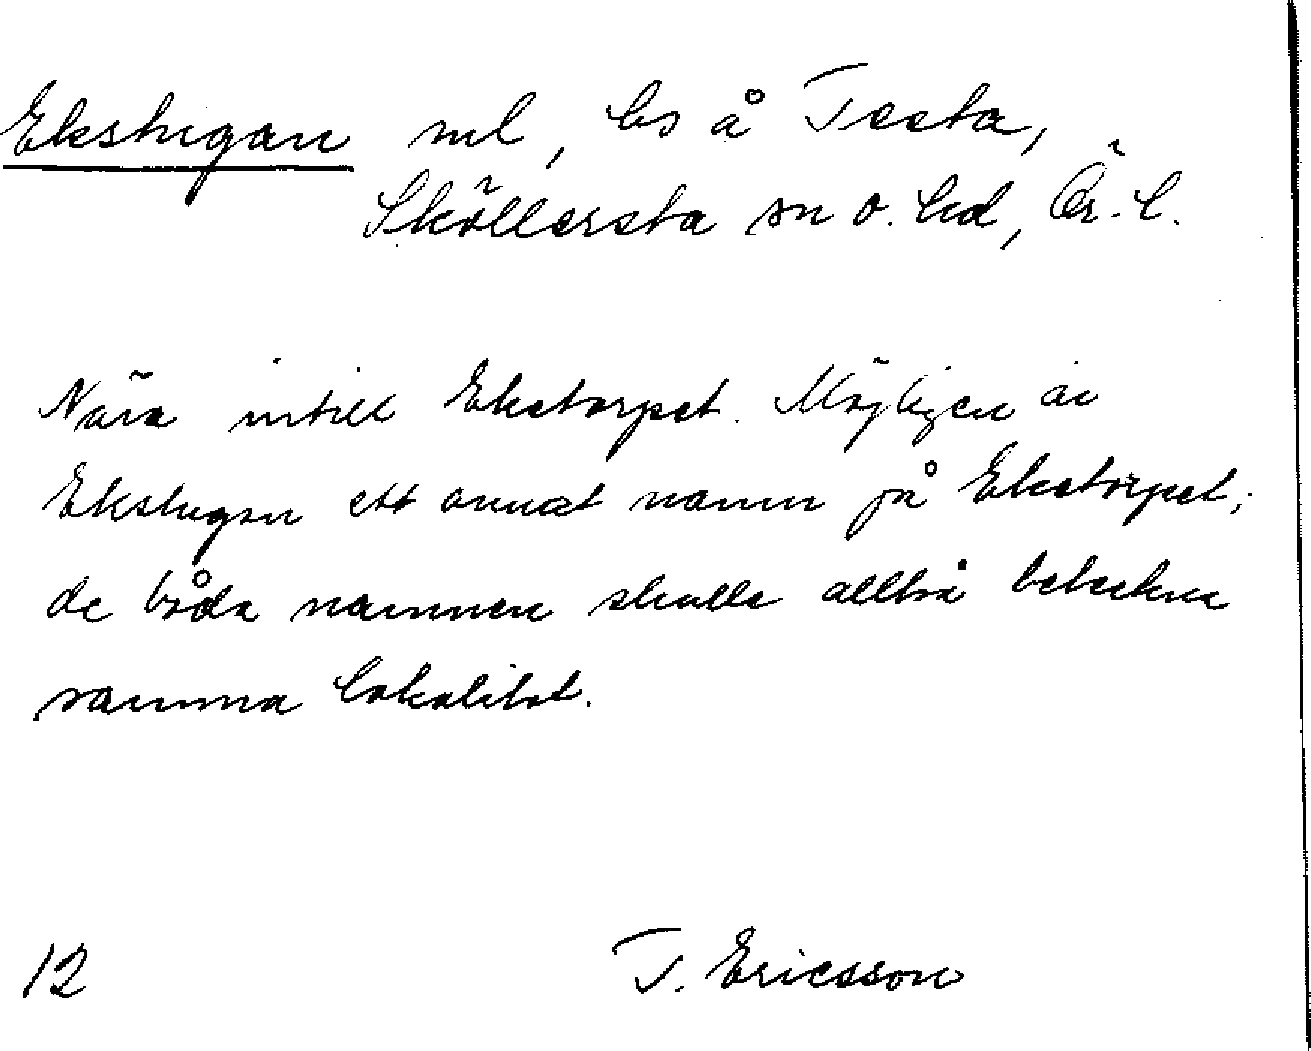 Ekstugan nul, ls å Testa,
Sköllersta sn o. hd, Ör. l.
Nära intill Ekstorpet. Möjligen är
Ekstugan ett annat namn på Ekstorpet;
de båda namnen skulle alltså beteckna
samma lokalitet.
12 T. Ericsson